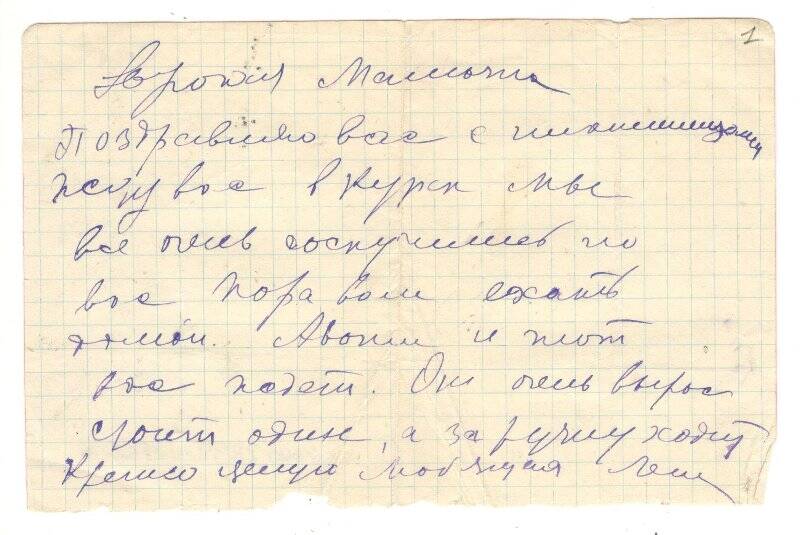 1
Дорогая Мамочка
Поздравляю вас с
жду вас в Курск мы
все очень соскучились по
вас пора вам ехать
домой. и тот
вас ждет. Он очень вырос
стоит один, а за ручку ходит
Крепко целую любящая